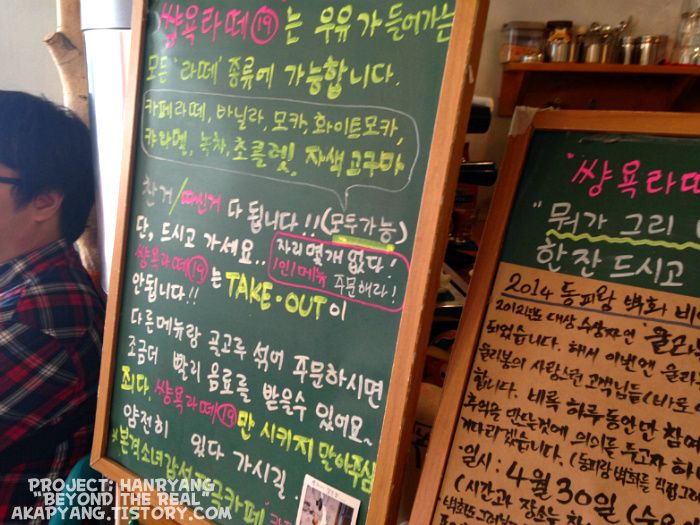 쌍욕라떼⑲는 우유가 들어가는
모든 '라떼' 종류에 가능합니다.
카페라떼, 바닐라, 모카, 화이트모카,
캬라멜, 녹차, 초콜렛, 자색고구마
찬거/따신거 다 됩니다!! (모두가능)
단, 드시고 가세요..
자리 몇개 없다!
1인1메뉴 주문해라!
쌍욕라떼⑲는 TAKE·OUT이
안됩니다!!
다른메뉴랑 골고루 섞어 주문하시면
조금더 빨리 음료를 받을수 있어요~
죄다, 쌍욕라떼⑲만 시키지 말아주심
얌전히 있다 가시길.
*본격소녀감성
"쌍욕라떼
"뭐가 그리
한잔 드시고
2014 동피랑 벽화
2012년도 대상 수상자인
되었습니다. 해서 이번엔
사랑스런 고객님들(바로
합니다. 비록 하루동안만
추억을 만드는것에 의의를 두고자
일시: 4월 30일 (수
(시간과 장소는
PROJECT: HANRYANG
"BEYOND THE REAL"
AKAPYANG.TISTORY.COM